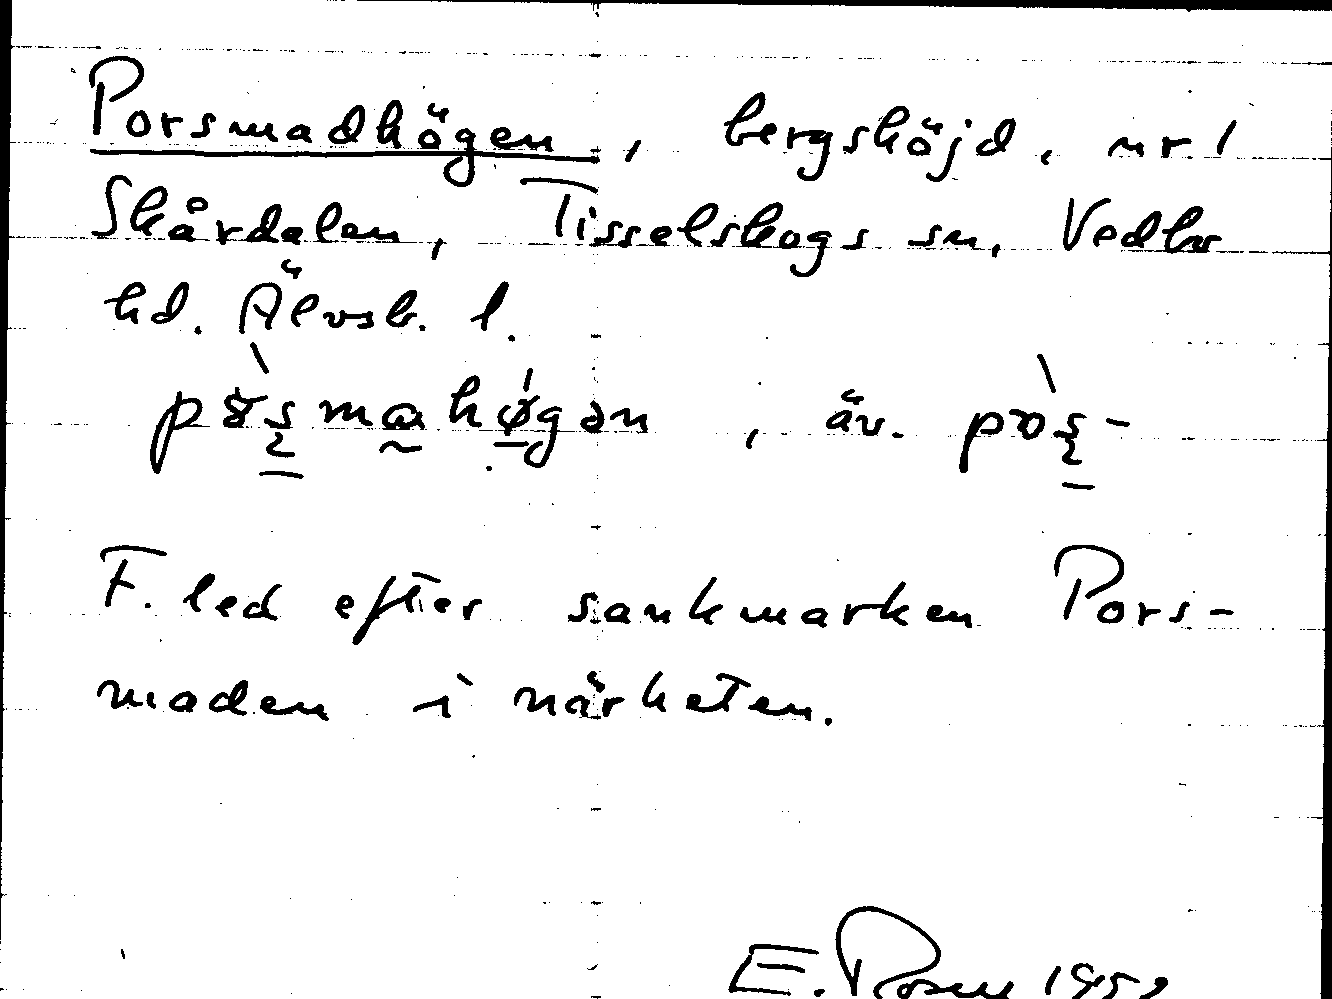 Porsmadhögen, bergshöjd, nr 1
Skårdalen, Tisselskogs sn, Vedbo
hd. Älvsb. l.
, äv.
F. led efter sankmarken Pors-
maden i närheten.
E. Rosen